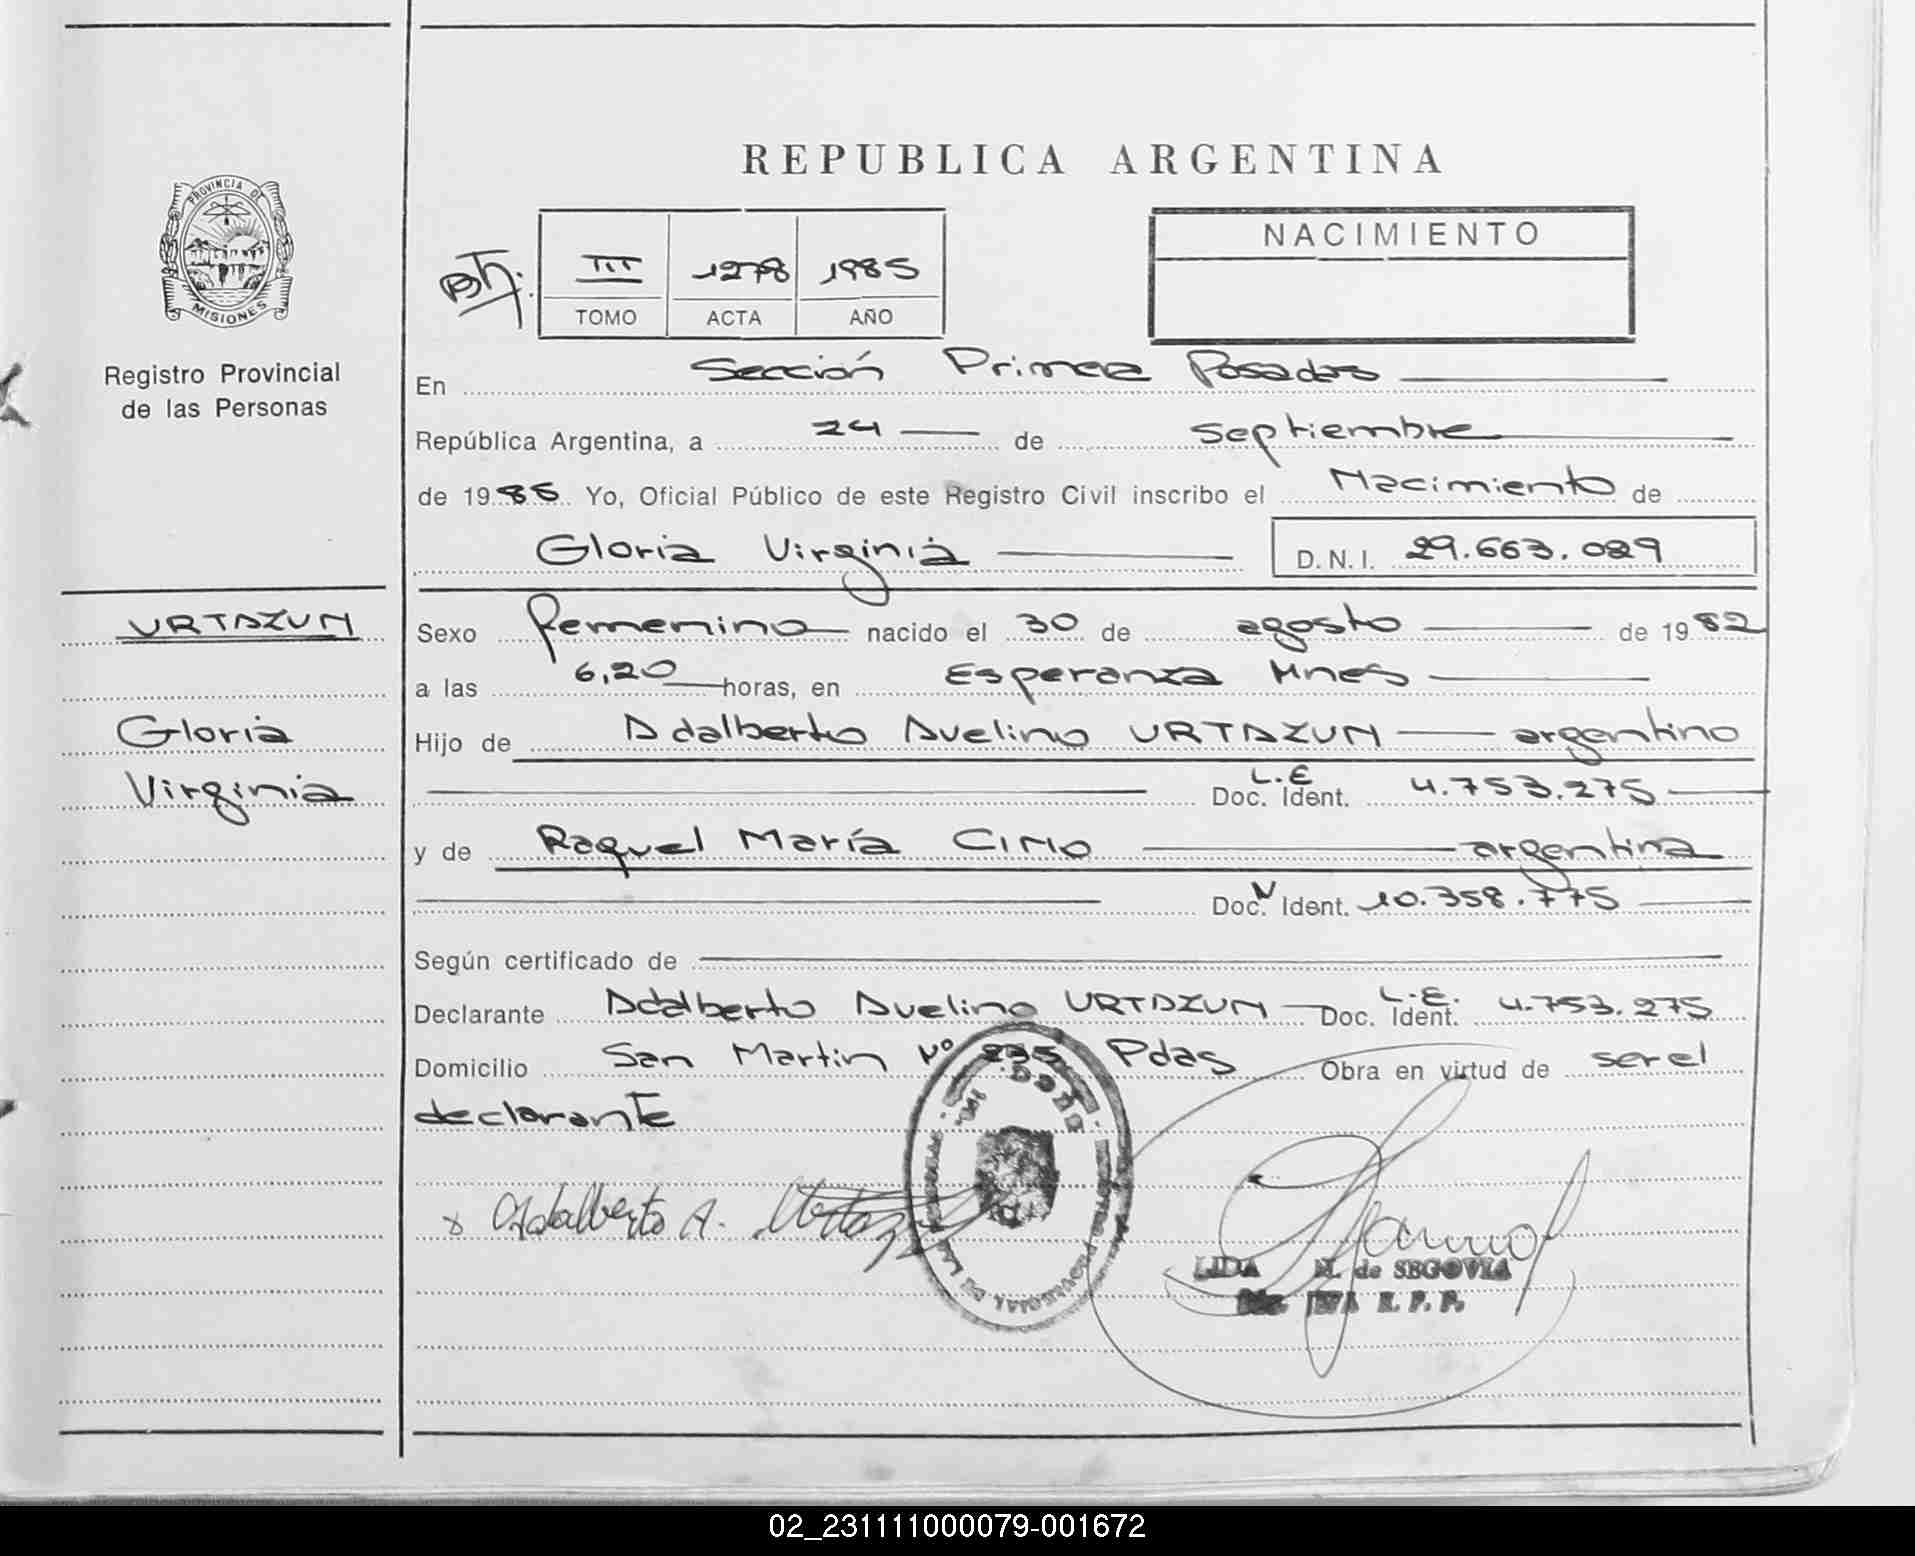 REPUBLICA ARGENTINA
PROVINCIA DE
MISIONES
Registro Provincial
de las Personas
III 1278 1985
TOMO ACTA AÑO
NACIMIENTO
En Sección Primera Posadas
República Argentina, a 24 de septiembre
de 1985 Yo, Oficial Público de este Registro Civil inscribo el Nacimiento de
Gloria Virginia D.N.I. 29.663.089
URTAZUN
Gloria
Virginia
Sexo femenino nacido el 30 de agosto de 1982
a las 6,20 horas, en Esperanza Mnes
Hijo de Adalberto Avelino URTAZUN argentino
L.E
Doc. Ident. 4.753.275
y de Raquel María CINO argentina
Doc. N Ident. 10.358.775
Según certificado de
Declarante Adalberto Avelino URTAZUN L.E. Doc. Ident. 4.753.275
Domicilio San Martin Nº 235 Pdas Obra en virtud de ser el
declarante
x Adalberto A. Urtazun
LIDA N. de SEGOVIA
R. P. P.
02_231111000079-001672